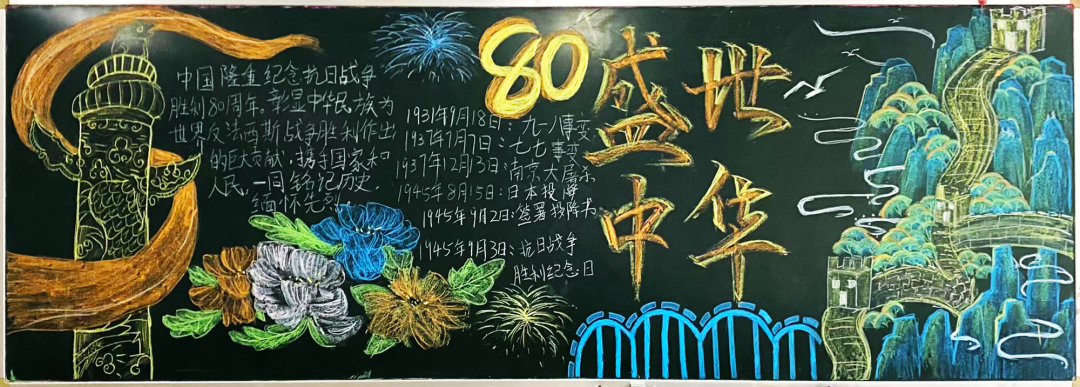 中国隆重纪念抗日战争
胜利80周年。彰显中华民族为
世界反法西斯战争胜利作出
的巨大贡献，携手国家和
人民，一同铭记历史，
缅怀先烈。
80
1931年9月18日：九一八事变
1937年7月7日：七七事变
1937年12月13日：南京大屠杀
1945年8月15日：日本投降
1945年9月2日：签署投降书
1945年9月3日：抗日战争
胜利纪念日
盛世
中华